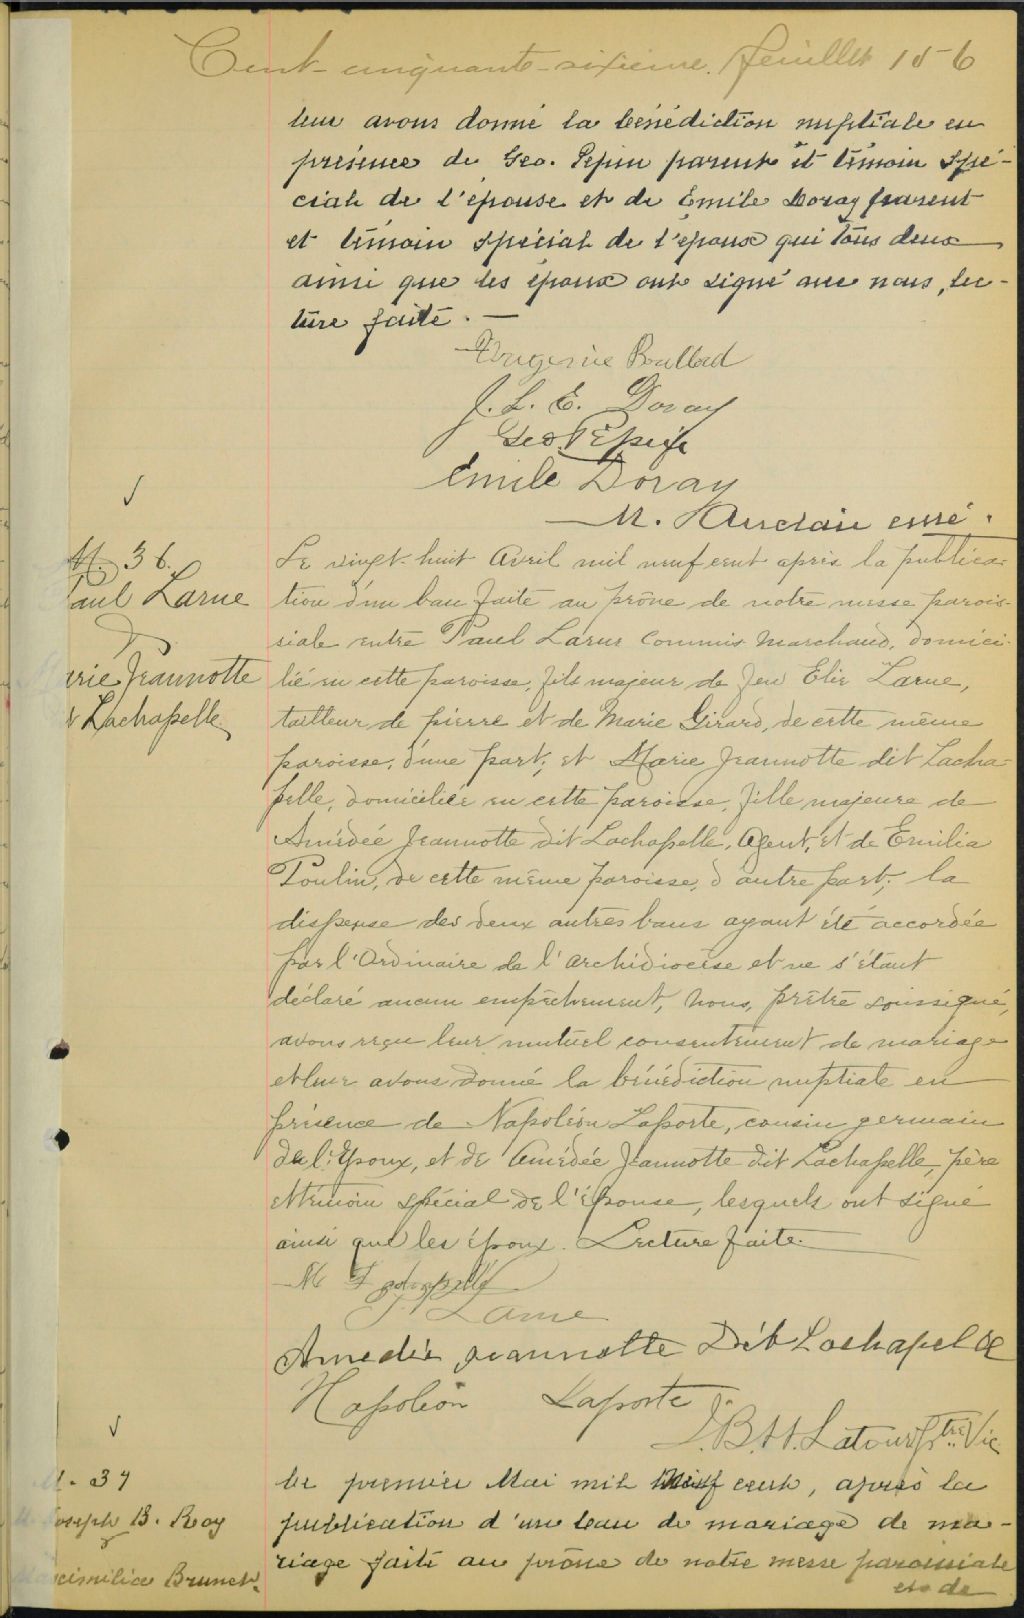 Cent-cinquante-sixième. feuillet 156
leur avons donné la bénédiction nuptiale en
présence de Geo. Pepin parent et témoin spé-
cial de l'épouse et de Emile Doray parent
et témoin spécial de l'époux qui tous deux
ainsi que les époux ont signé avec nous, lec-
ture faite. —
Eugenie
J. L. E. Doray
Geo. Pepin
Emile Doray
M. Auclair curé.
M. 36.
aul Larue
&
arie Jeannotte
t Lachapelle
Le vingt-huit Avril mil neuf cent après la publica-
tion d'un ban faite au prône de notre messe parois-
siale entre Paul Larue Commis Marchand, domici-
lié en cette paroisse, fils majeur de feu Elie Larue,
tailleur de pierre et de Marie Girard, de cette même
paroisse, d'une part; et Marie Jeannotte dit Lacha-
pelle, domiciliée en cette paroisse, fille majeure de
Amédée Jeannotte dit Lachapelle, Agent, et de Emilia
Poulin, de cette même paroisse, d'autre part; la
dispense des deux autres bans ayant été accordée
par l'Ordinaire de l'archidiocèse et ne s'étant
déclaré aucun empêchement, Nous, prêtre soussigné,
avons reçu leur mutuel consentement de mariage
et leur avons donné la bénédiction nuptiale en
présence de Napoléon Laporte, cousin germain
de l'Epoux, et de Amédée Jeannotte dit Lachapelle, père
et témoin spécial de l'épouse, lesquels ont signé
ainsi que les époux. Lecture faite.
M Lachapelle
P. Larue
Amedée jeannotte Dit Lachapelle
Napoléon Laporte
J. B. H. Latour Ptre Vic.
M. 37
Joseph B. Roy
&
aximilia Brunet.
Le premier Mai mil neuf cent, après la
publication d'un ban de mariage de ma-
riage faite au prône de notre messe paroissiale
et de